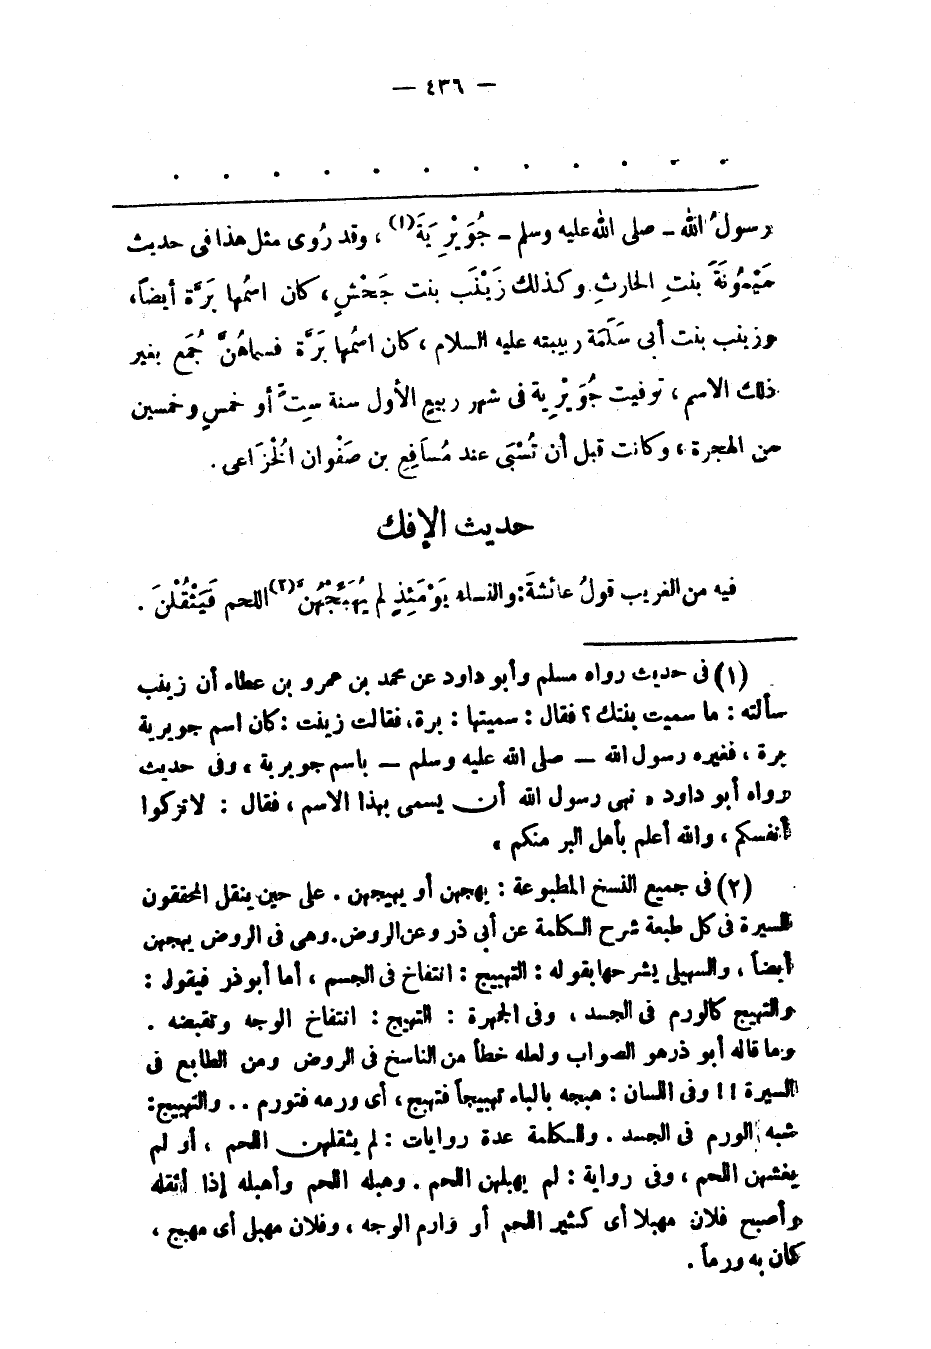 — ٤٣٦ —
. . . . . . . . . . . .
رسولُ الله – صلى الله عليه وسلم – جُوَيْرِيَةَ(١) ، وقد رُوى مثل هذا فى حديث
مَيْمُونَةَ بنتِ الحارثِ وكذلك زَيْنَب بنت جَحْشٍ ، كان اسمُها بَرَّة أيضاً ،
وزينب بنت أبى سَلَمَة ربيبته عليه السلام ، كان اسمُها بَرَّة فسماهُنَّ جُمَع بغير
ذلك الاسم ، توفيت جُوَيْرِية فى شهر ربيعٍ الأول سنة ستٍّ أو خمسٍ وخمسين
من الهجرة ، وكانت قبل أن تُسْبَى عند مُسَافِعِ بن صَفْوان الُخْزَاعى .
حديث الإفك
فيه من الغريب قولُ عائشةَ : والنساء يَوْمَئِذٍ لم يُهَبِّجْهُنَّ(٢) اللحم فَيَثْقُلْنَ .
(١) فى حديث رواه مسلم وأبو داود عن محمد بن عمرو بن عطاء أن زينب
سألته : ما سميت بنتك ؟ فقال : سميتها : برة ، فقالت زينت : كان اسم جويرية
برة ، فغيره رسول الله — صلى الله عليه وسلم — باسم جويرية ، وفى حديث
رواه أبو داود « نهى رسول الله أن يسمى بهذا الاسم ، فقال : لا تزكوا
أنفسكم ، والله أعلم بأهل البر منكم »
(٢) فى جميع النسخ المطبوعة : يهجهن أو يهيجهن . على حين ينقل المحققون
للسيرة فى كل طبعة شرح الكلمة عن أبى ذر وعن الروض . وهى فى الروض يهجهن
أيضاً ، والسهيلى يشرحها بقوله : التهييج : انتفاخ فى الجسم ، أما أبو ذر فيقول :
والتهيج كالورم فى الجسد ، وفى الجمهرة : التهيج : انتفاخ الوجه وتقبضه .
وما قاله أبو ذر هو الصواب ولعله خطأ من الناسخ فى الروض ومن الطابع فى
السيرة !! وفى اللسان : هبجه بالباء تهبيجاً فتهبج ، أى ورمه فتورم .. والتهبيج :
شبه الورم فى الجسد . والكلمة عدة روايات : لم يثقلهن اللحم ، أو لم
يغشهن اللحم ، وفى رواية : لم يهبلهن اللحم . وهبله اللحم وأهبله إذا أثقله
وأصبح فلان مهبلا أى كثير اللحم أو وارم الوجه ، وفلان مهبل أى مهبج ،
كان به ورماً .